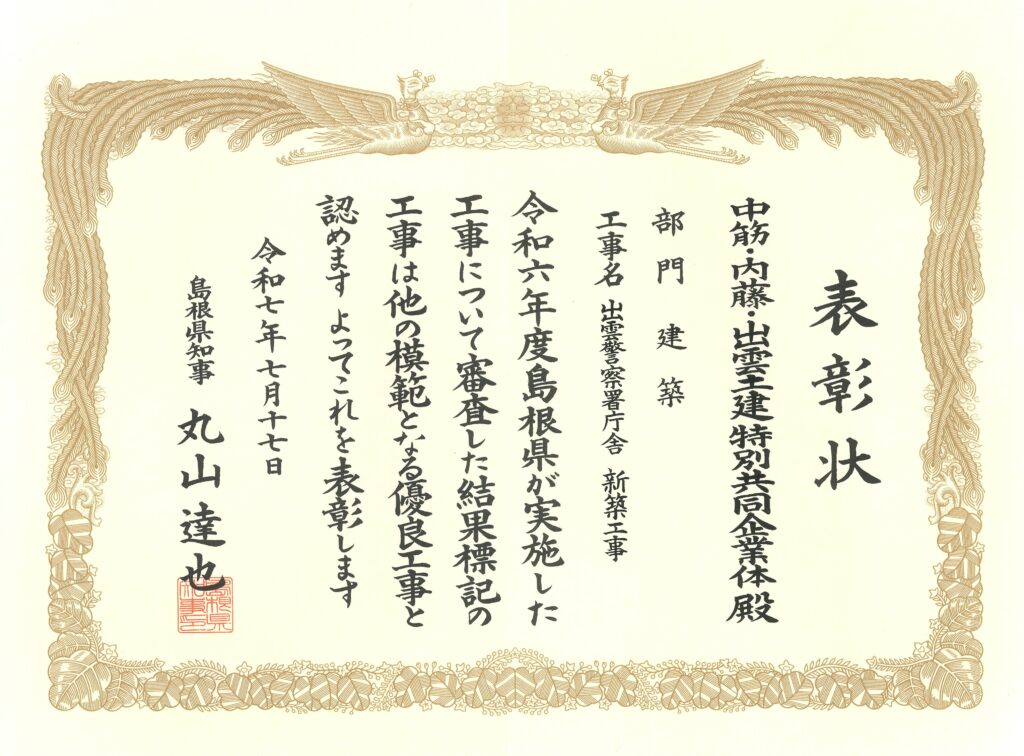 表彰状
中筋・内藤・出雲土建特別共同企業体殿
部門 建築
工事名 出雲警察署庁舎 新築工事
令和六年度島根県が実施した
工事について審査した結果標記の
工事は他の模範となる優良工事と
認めます よってこれを表彰します
令和七年七月十七日
島根県知事 丸山達也
島根県知事之印